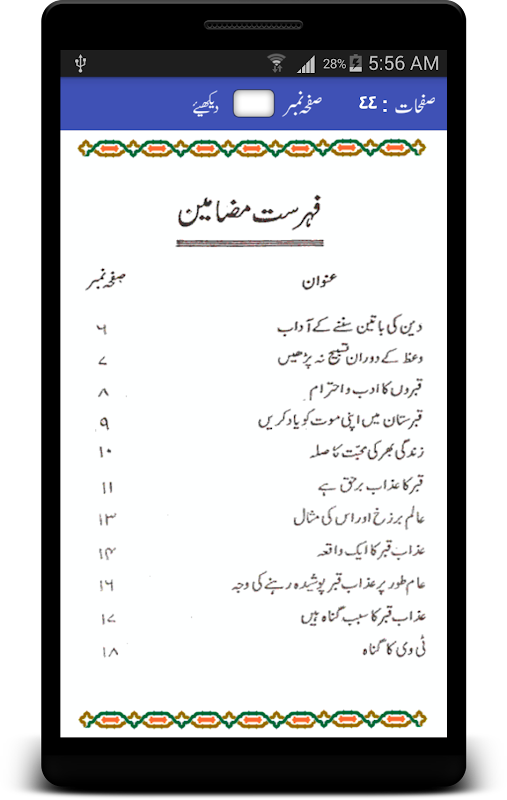 28% 5:56 AM
صفحات : ٤٤ صفحہ نمبر دیکھیئے
فہرست مضامین
عنوان صفحہ نمبر
دین کی باتیں سننے کے آداب ۶
وعظ کے دوران تسبیح نہ پڑھیں ۷
قبروں کا ادب واحترام ۸
قبرستان میں اپنی موت کو یاد کریں ۹
زندگی بھر کی محبت کا صلہ ۱۰
قبر کا عذاب برحق ہے ۱۱
عالم برزخ اور اس کی مثال ۱۳
عذاب قبر کا ایک واقعہ ۱۴
عام طور پر عذاب قبر پوشیدہ رہنے کی وجہ ۱۶
عذاب قبر کا سبب گناہ ہیں ۱۷
ٹی وی کا گناہ ۱۸